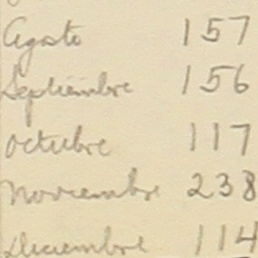 Agosto 157
Septiembre 156
Octubre 117
Noviembre 238
Diciembre 114